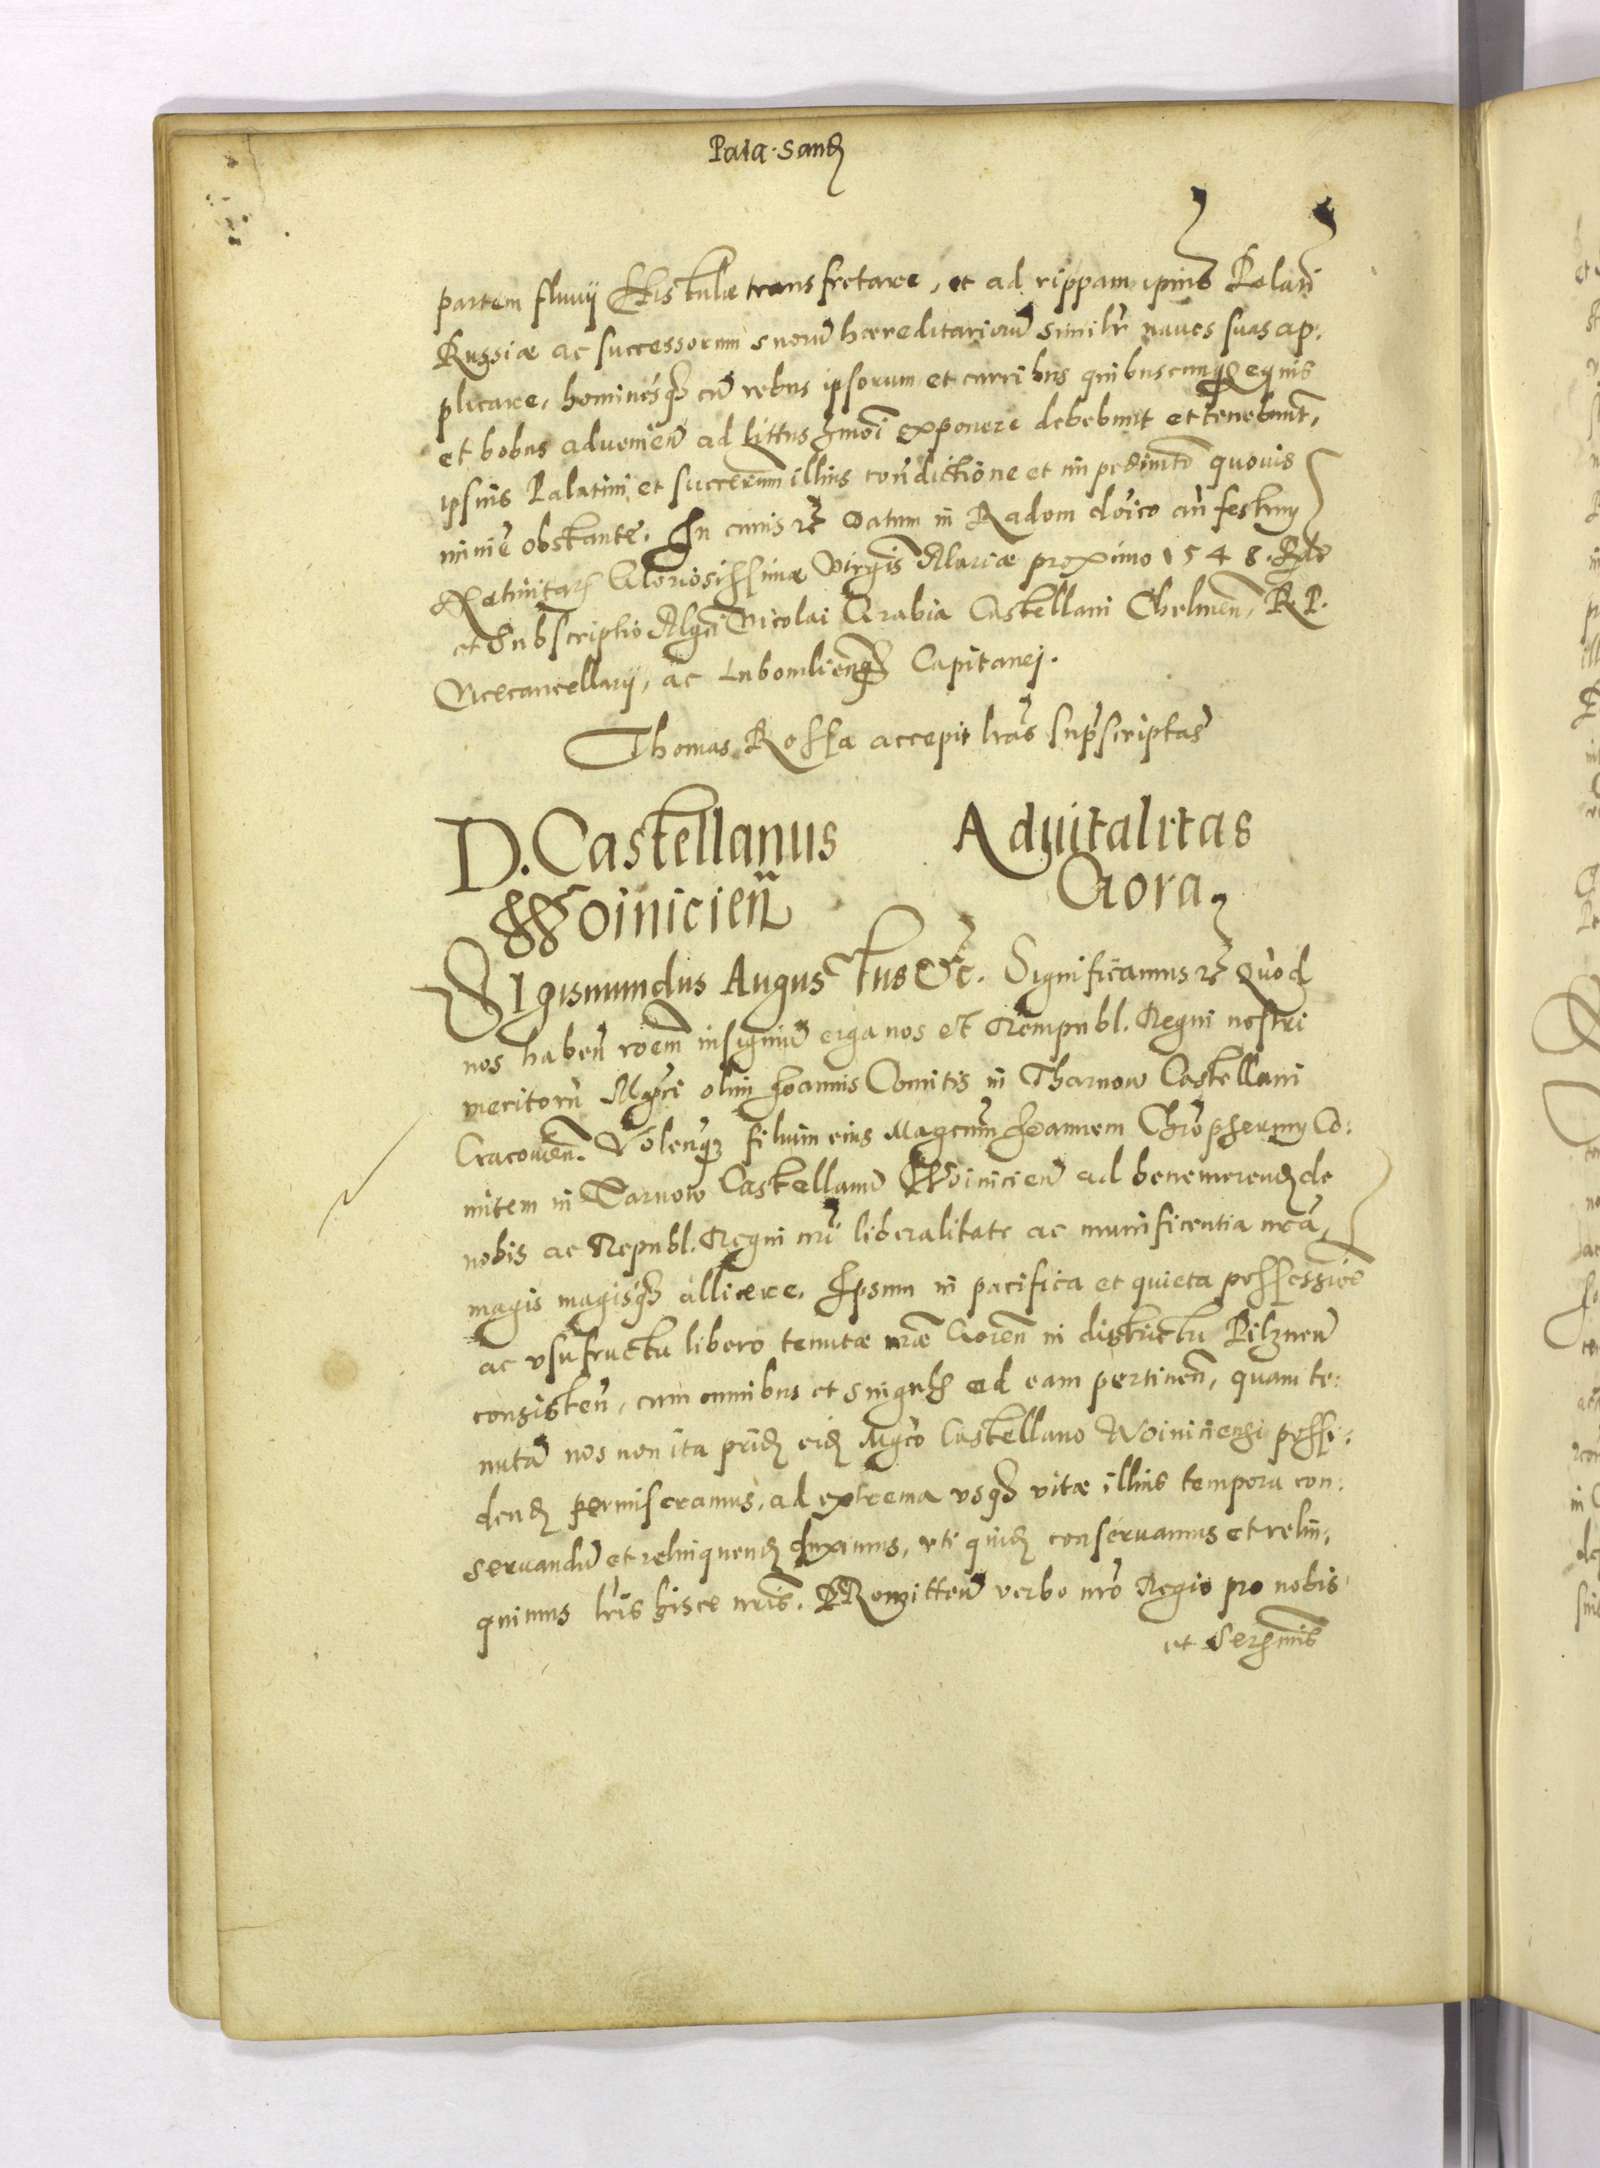 Pala. Sand
partem fluvij Wistulæ transfretare, et ad rippam ipius Palani
Russiæ ac successorum suorũ hæreditariorũ similr̃ naves suas ap:
plicare, hominesq̃ cũ rebus ipsorum et curribus quibuscunq̃ equis
et bobus advenieñ ad littus hmõi exponere debebunt et tenebunt,
ipsius Palatini, et succerum illius condictione et impedimto quovis
minie obstante. In cuius rei Datum in Radom dnico añ festum
Natiuitatis Gloriosissimæ Virginis Mariæ proximo 1548. Rlo
et Subscriptio Mgci Nicolai Grabia Castellani Chelmeñ, R. P.
Vicecancellarij, ac Lubomlieñq̃ Capitanej.
Thomas Rossa accepit lras supscriptas
D. Castellanus Advitalitas
Woinicieñ Gora
Sigismundus Augustus &c. Significamus rc̃ Quod
nos habeñ roem insigniũ erga nos et Rempubl. Regni nostri
meritorũ Mgci olim Joannis Comitis in Tharnow Castellani
Cracovieñ. Volenq̃ filium eius Magcum Joannem Chrophorum Co:
mitem in Tarnow Castellanũ Woinicieñ ad benemerend de
nobis ac Republ. Regni nri liberalitate ac munificentia nra,
magis magisq̃ allicere. Ipsum in pacifica et quieta possessioe
ac usufructu libero tenutæ nræ Goreñ in districtu Pilzneñ
consisteñ, cum omnibus et singulis ad eam pertineñ, quam te:
nutã nos non ita prid eid Mgco Castellano Woiniciensi possi:
dend permiseramus, ad extrema usq̃ vitæ illius tempora con:
servandũ et relinquend duximus, uti quid conservamus et relin:
quimus lris hisce nris. PRomitteñ verbo nro Regio pro nobis
et Serhmis